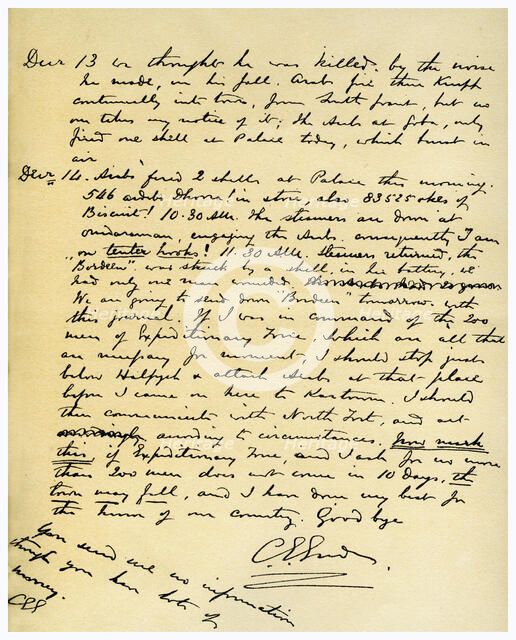 Decr 13 we thought he was killed. by the noise
he made, in his fall. Arabs fire their Krupp
continually into town, from South front, but no
one takes any notice of it; the Arabs at Goba, only
fired one shell at Palace today, which burst in
air
Decr 14. Arabs fired 2 shells at Palace this morning.
546 ardebs Dhoora! in store, also 83525 okes of
Biscuit! 10.30 AM. The steamers are down at
Omdurman, engaging the Arabs, consequently I am
"on tenter hooks! 11.30 AM. Steamers returned, the
"Bordeen" was struck by a shell, in her battery, we
had only one man wounded,
We are going to send down "Bordeen" tomorrow with
this journal. If I was in command of the 200
men of Expeditionary Force, which are all that
are necessary for moment, I should stop just
below Halfyeh & attack Arabs at that place
before I came on here to Kartoum. I should
then communicate with North Fort, and act
according to circumstances. Now mark
this, if Expeditionary Force, and I ask for no more
than 200 men does not come in 10 days, the
town may fall, and I have done my best for
the honor of our country. Good bye
C G Gordon
You send me no information
though you have lots of
money.
CGG